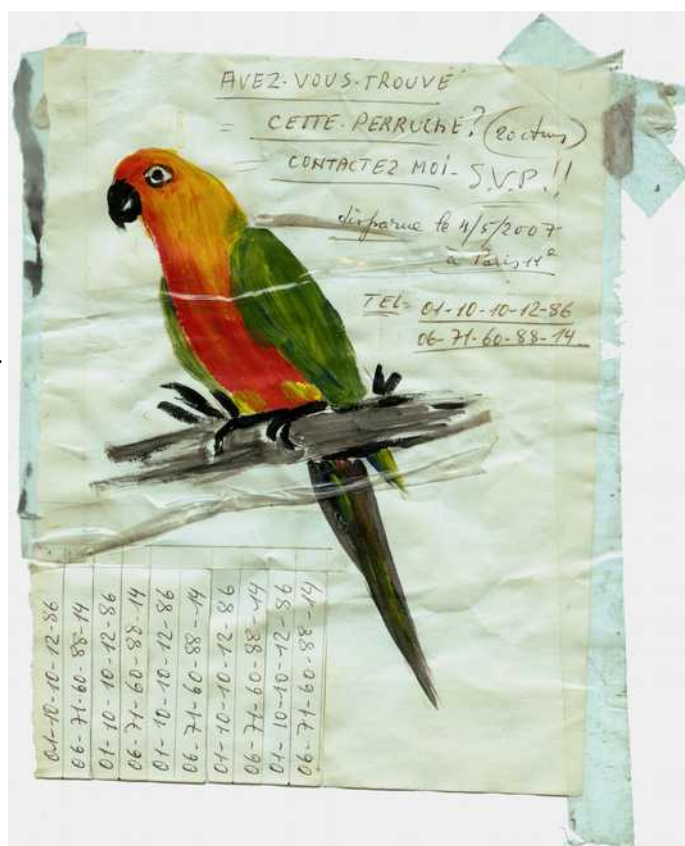 AVEZ-VOUS-TROUVÉ
= CETTE-PERRUCHE? (20 ctms)
= CONTACTEZ MOI- S.V.P.!!
disparue le 4/5/2007
à Paris 11e
TEL= 01-10-10-12-86
06-71-60-88-14
01-10-10-12-86
06-71-60-88-14
01-10-10-12-86
06-71-60-88-14
01-10-10-12-86
06-71-60-88-14
01-10-10-12-86
06-71-60-88-14
01-10-10-12-86
06-71-60-88-14